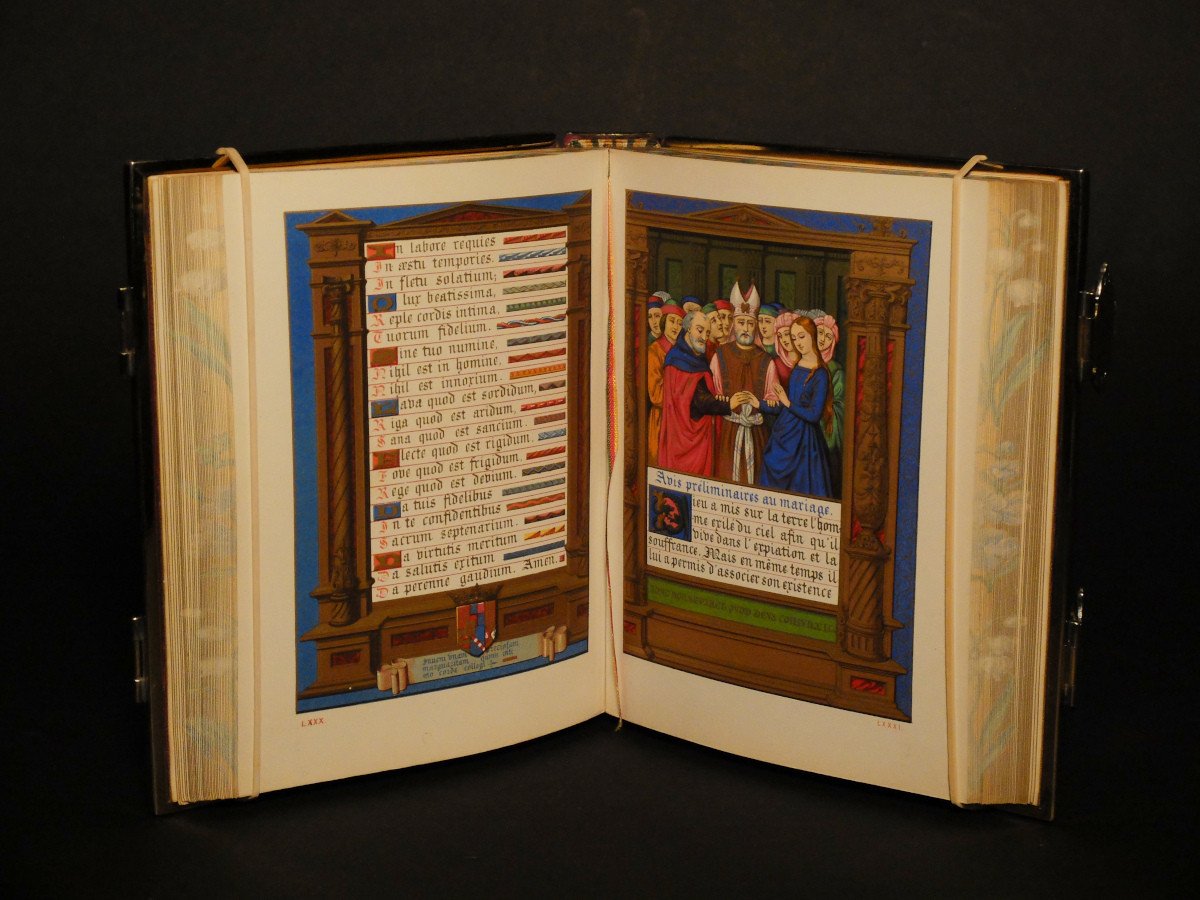 In labore requies
In æstu tempories.
In fletu solatium;
O lux beatissima,
Reple cordis intima,
Tuorum fidelium.
Sine tuo numine,
Nihil est in homine.
Nihil est innoxium.
Lava quod est sordidum,
Riga quod est aridum,
Sana quod est sancium.
Flecte quod est rigidum.
Fove quod est frigidum.
Rege quod est devium.
Da tuis fidelibus
In te confidentibus
Sacrum septenarium.
Da virtutis meritum
Da salutis exitum
Da perenne gaudium. Amen.
Inveni unam preciosam
margaritam
corde collegi
LXXX
Avis préliminaires au mariage.
Dieu a mis sur la terre l'hom
me exilé du ciel afin qu'il
vive dans l'expiation et la
souffrance. Mais en même temps il
lui a permis d'associer son existence
QUOD DEUS
LXXXI